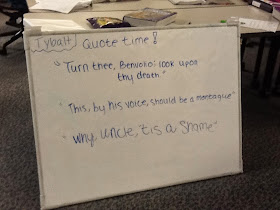 Tybalt Quote time!
"Turn thee, Benvolio; look upon
thy death"
"This, by his voice, should be a montague"
"why, uncle, 'tis a shame"